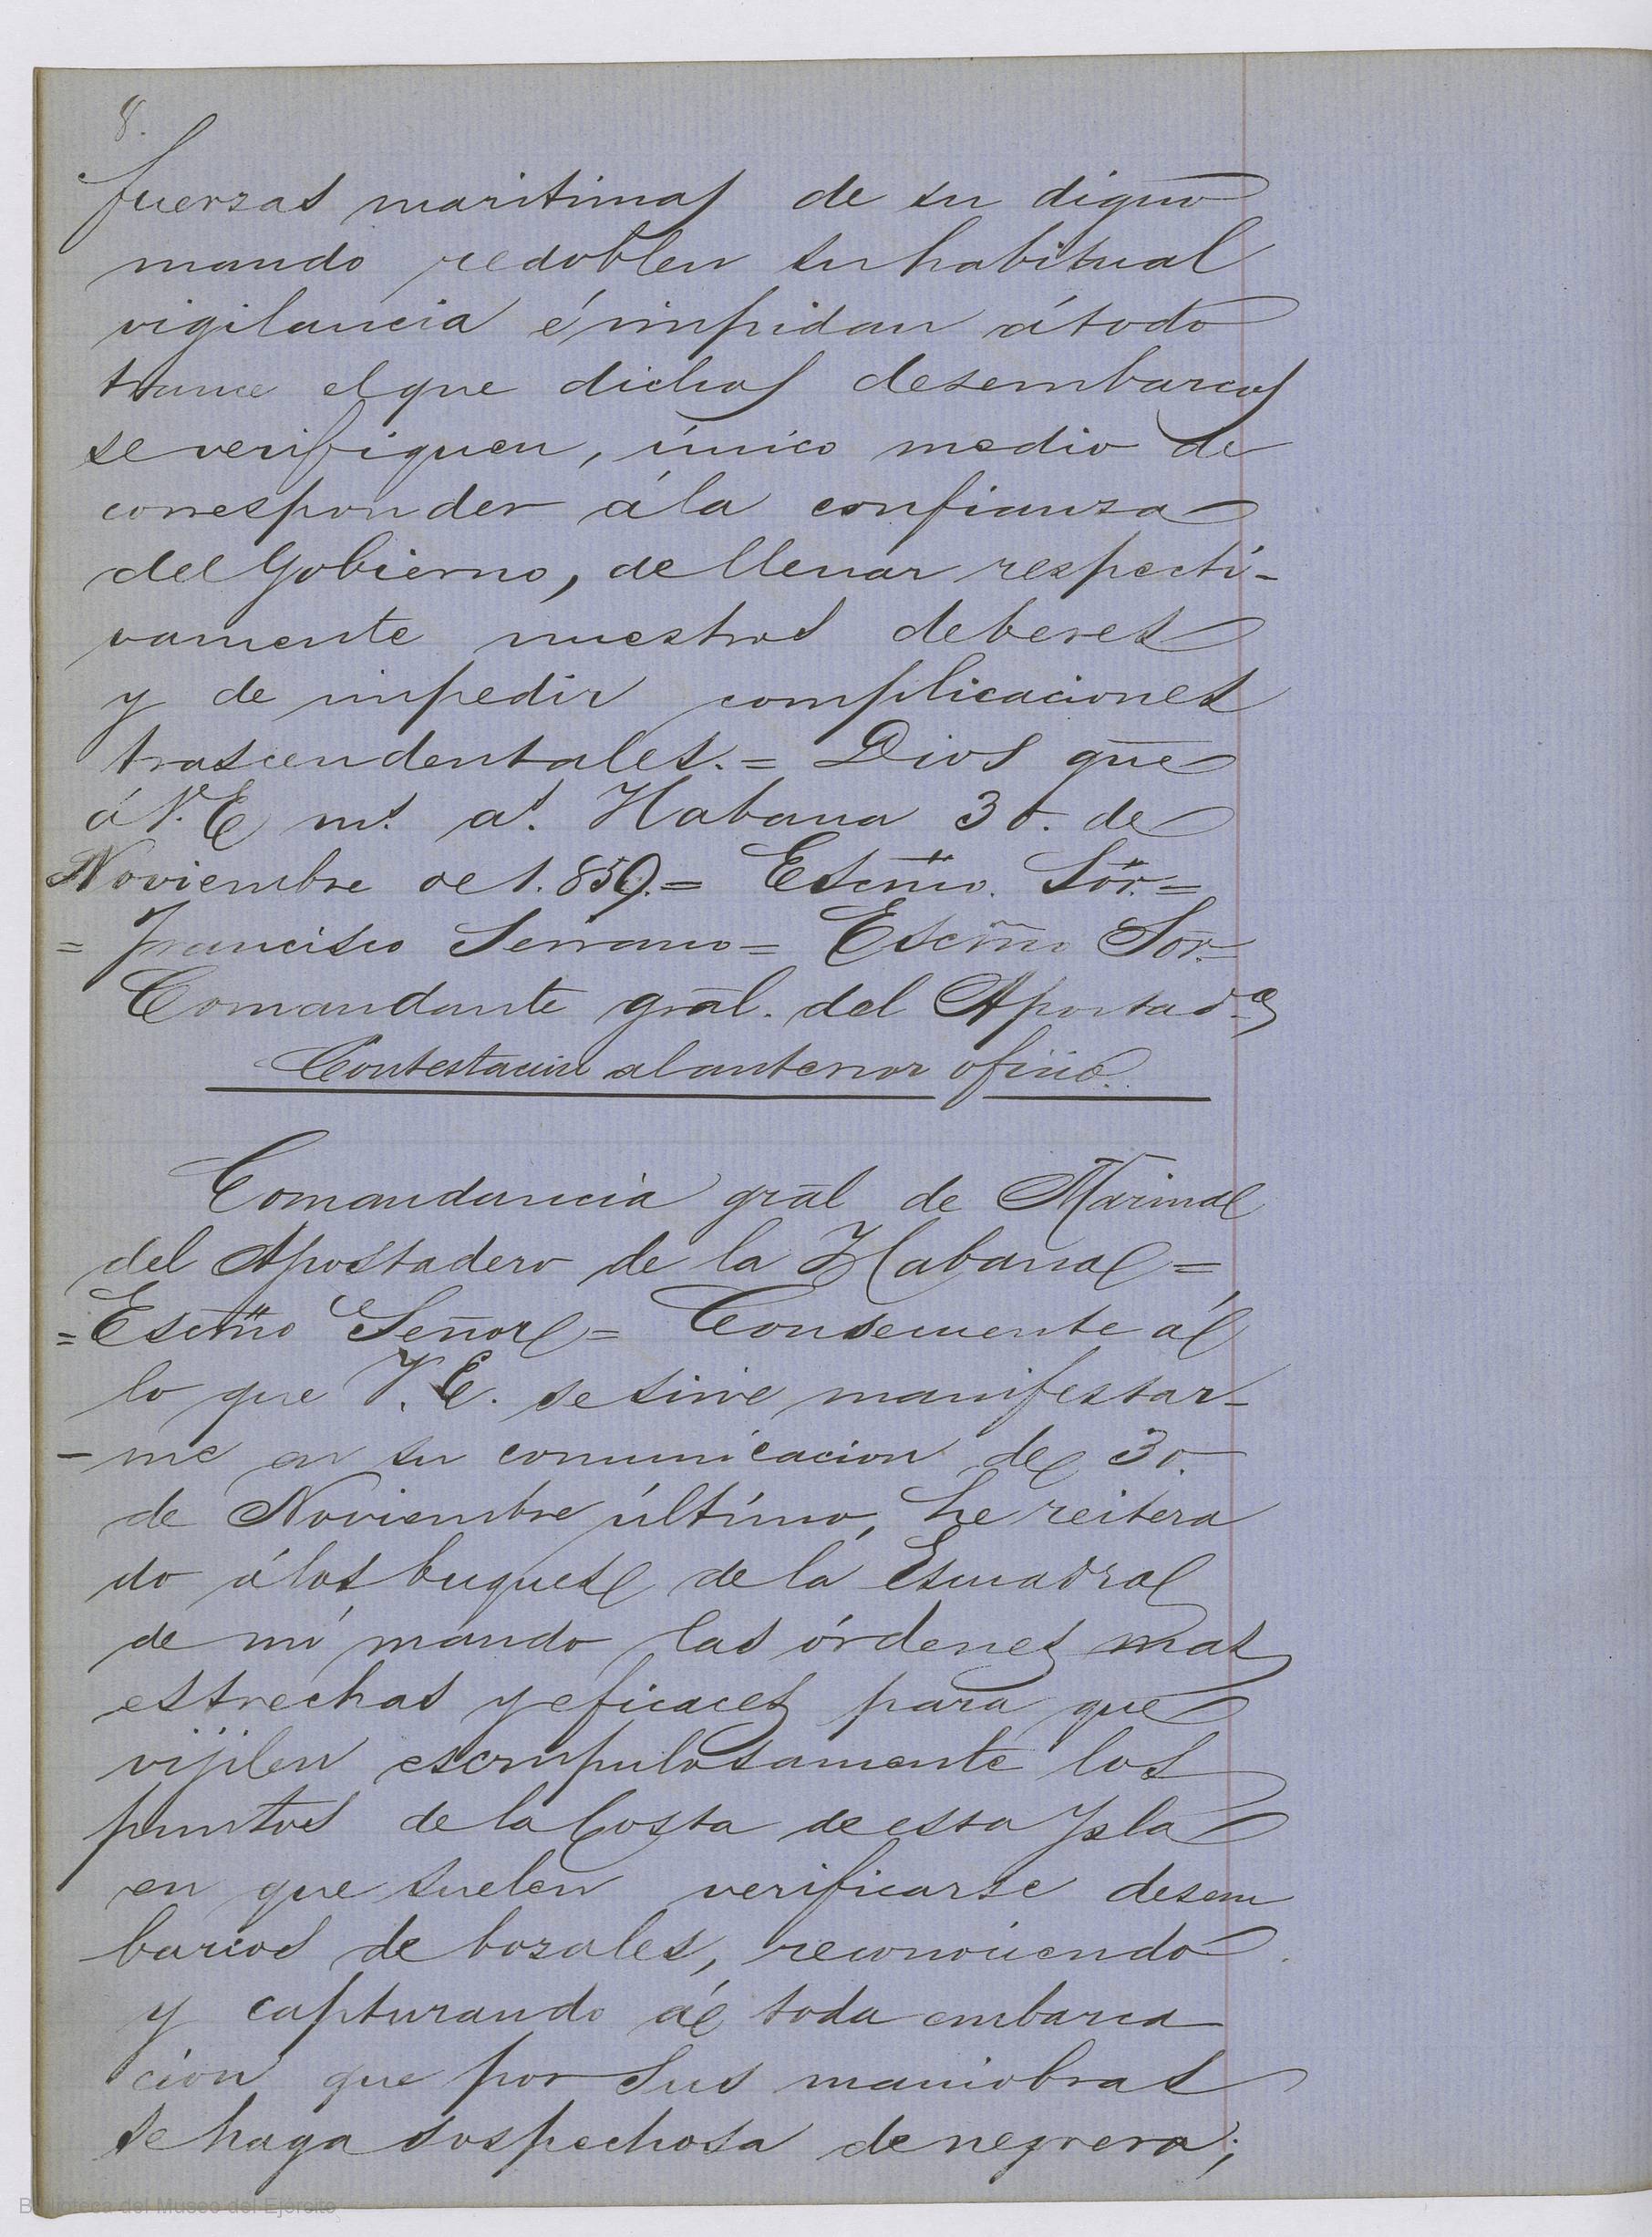 8.
fuerzas maritimas de su digno
mando redoblen su habitual
vigilancia é impidan á todo
trance el que dichos desembarcos
se verifiquen, único medio de
corresponder á la confianza
del Gobierno, de llenar respecti-
vamente nuestros deberes
y de impedir complicaciones
trascendentales.= Dios que
á V.E ms. as. Habana 30. de
Noviembre de 1.859.= Escmo. Sor.=
= Francisco Serrano= Escmo Sor=
Comandante gral. del Apostado
Contestacion al anterior oficio.
Comandancia gral de Marina
del Apostadero de la Habana=
=Escmo Señor= Consecuente á
lo que V.E. se sirve manifestar-
-me en su comunicacion de 30.
de Noviembre último, he reitera
do á los buques de la Escuadra
de mi mando las órdenes mas
estrechas y eficaces para que
vijilen escrupulosamente los
puntos de la Costa de esta Ysla
en que suelen verificarse desem
barcos de bozales, reconociendo
y capturando á toda embarca
cion que por sus maniobras
se haga sospechosa de negrera;
Biblioteca del Museo del Ejercito